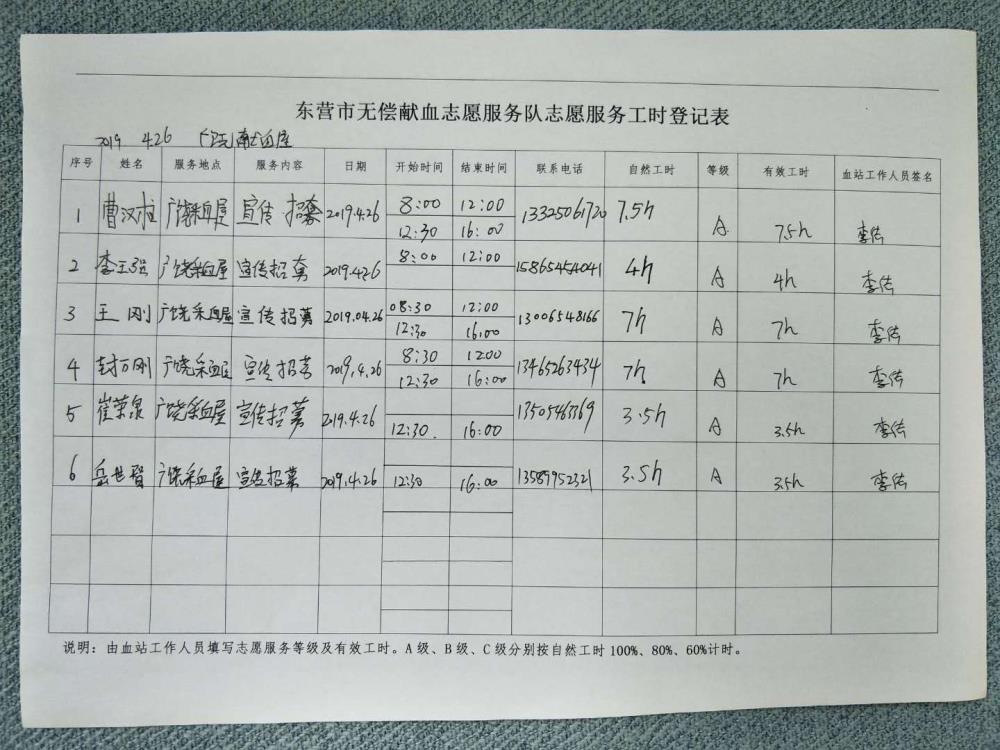 东营市无偿献血志愿服务队志愿服务工时登记表
2019 4.26 广饶献血屋
序号 姓名 服务地点 服务内容 日期 开始时间 结束时间 联系电话 自然工时 等级 有效工时 血站工作人员签名
1 曹汉柱 广饶采血屋 宣传招募 2019.4.26 8:00 12:00 13325061720 7.5h A 7.5h 李传
12:30 16:00
2 李玉强 广饶采血屋 宣传招募 2019.4.26 8:00 12:00 15865454041 4h A 4h 李传
3 王刚 广饶采血屋 宣传招募 2019.04.26 08:30 12:00 13006548166 7h A 7h 李传
12:30 16:00
4 封万刚 广饶采血屋 宣传招募 2019.4.26 8:30 12:00 13465263434 7h A 7h 李传
12:30 16:00
5 崔荣泉 广饶采血屋 宣传招募 2019.4.26 12:30 16:00 3.5h A 3.5h 李传
6 岳世 广饶采血屋 宣传招募 2019.4.26 12:30 16:00 13589952321 3.5h A 3.5h 李传
说明：由血站工作人员填写志愿服务等级及有效工时。A 级、B 级、C 级分别按自然工时 100%、80%、60%计时。